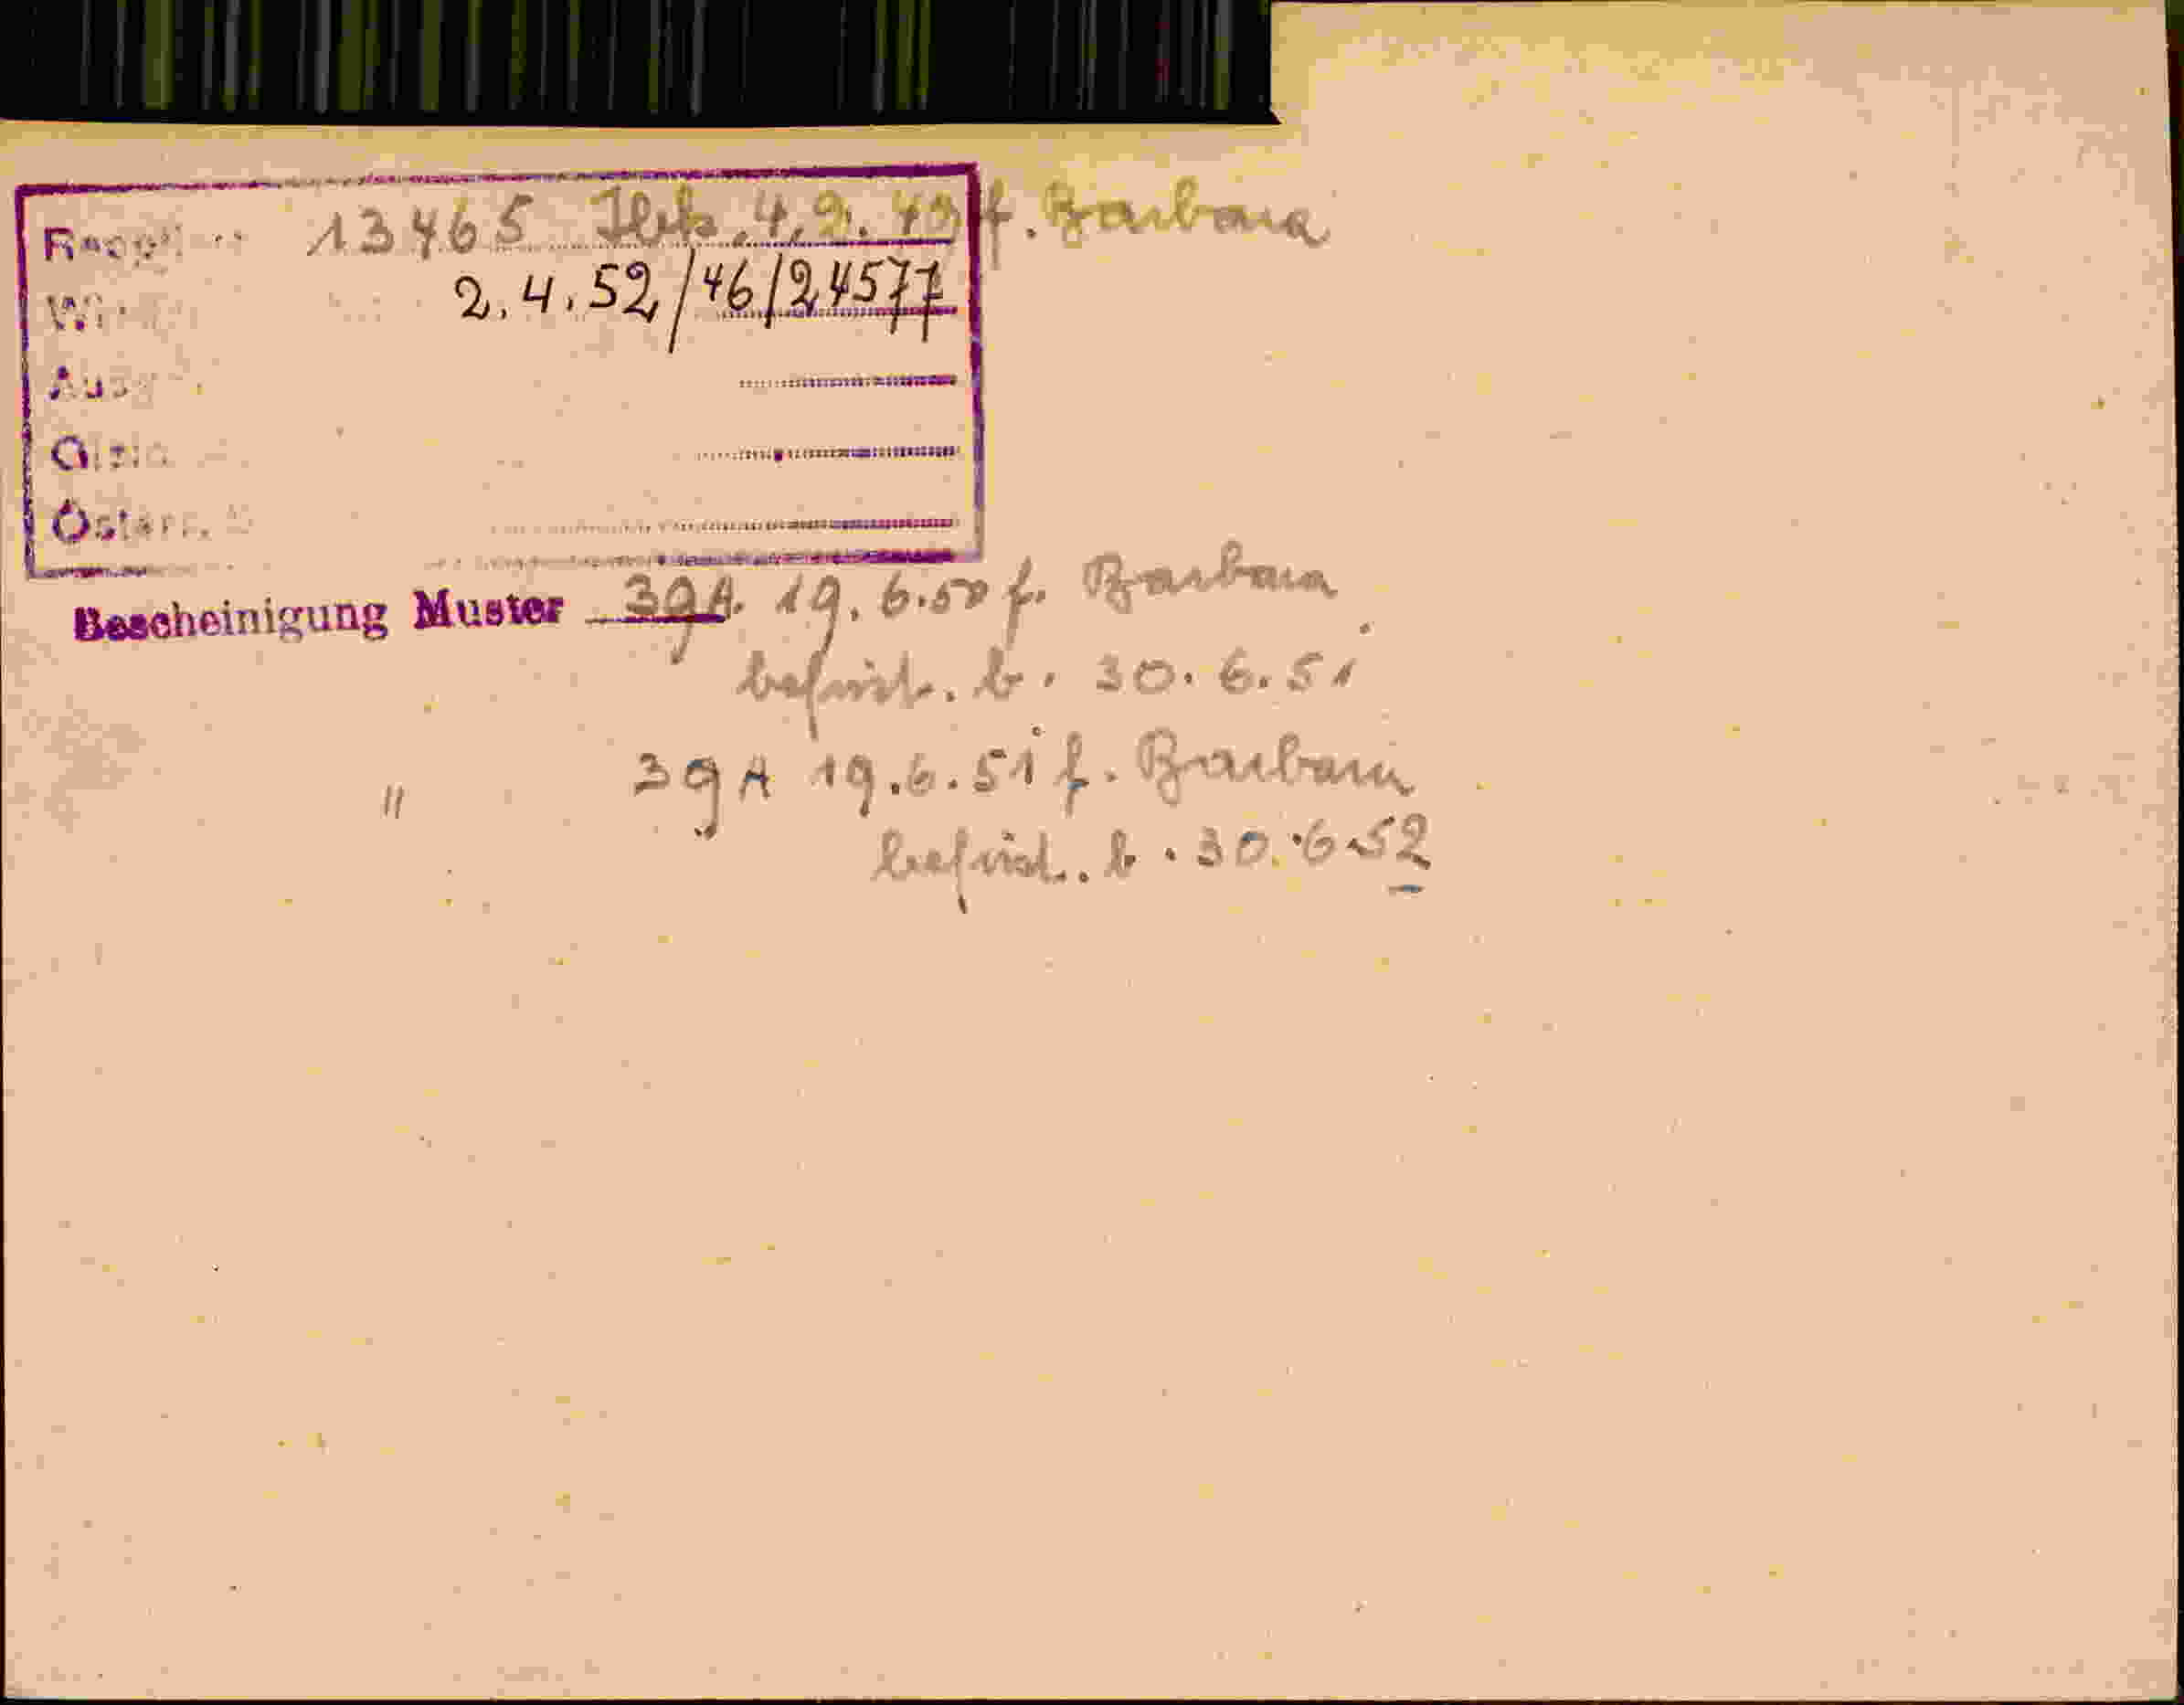 13465 4.9.49 f. Barbara
2.4.52/46/24577
Österr.
Bescheinigung Muster 39A. 19.6.50 f. Barbara
befrist. b. 30.6.51
" 39A 19.6.51 f. Barbara
befrist. b. 30.6.52